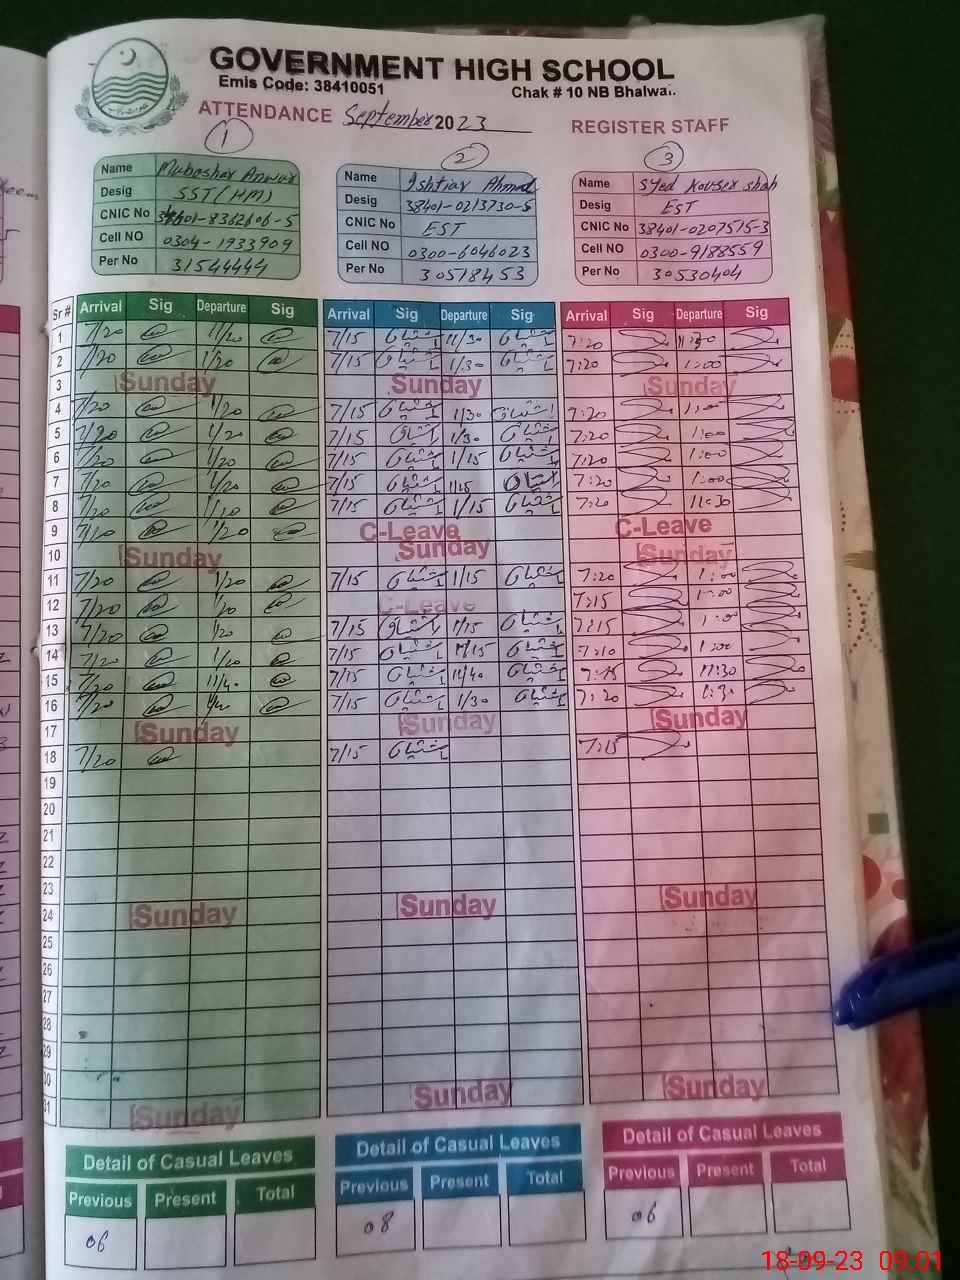 GOVERNMENT HIGH SCHOOL
Emis Code: 38410051 Chak # 10 NB Bhalwa..
ATTENDANCE September 2023 REGISTER STAFF
1 2 3
Name Mubasher Anwar Name Ishtiaq Ahmad Name Syed Kouser shah
Desig SST (HM) Desig 38401-0213730-5 Desig EST
CNIC No 38401-8362606-5 CNIC No EST CNIC No 38401-0207515-3
Cell NO 0304-1933909 Cell NO 0300-6046023 Cell NO 0300-9188559
Per No 31544444 Per No 30518453 Per No 30530404
Sr # Arrival Sig Departure Sig Arrival Sig Departure Sig Arrival Sig Departure Sig
1 7/20 11/20 7/15 اشتیاق 11/30 اشتیاق 7:20
2 7/20 1/20 7/15 اشتیاق 1/30 اشتیاق 7:20 1:00
3 Sunday Sunday Sunday
4 7/20 1/20 7/15 اشتیاق 1/30 اشتیاق 7:20 1:00
5 7/20 1/20 7/15 اشتیاق 1/30 اشتیاق 7:20 1:00
6 7/20 1/20 7/15 اشتیاق 1/15 اشتیاق 7:20 1:00
7 7/20 1/20 7/15 اشتیاق 1/15 اشتیاق 7:20 1:00
8 7/20 7/15 اشتیاق 1/15 اشتیاق 7:20 11:30
9 7/20 1/20 C-Leave C-Leave
10 Sunday Sunday Sunday
11 7/20 1/20 7/15 اشتیاق 1/15 اشتیاق 7:20 1:00
12 7/20 1/20 C-Leave 7:15 1:00
13 7/20 1/20 7/15 اشتیاق 1/15 اشتیاق 7:15 1:00
14 7/20 1/20 7/15 اشتیاق 1/15 اشتیاق 7:10 1:00
15 7/20 11/40 7/15 اشتیاق 11/40 اشتیاق 7:15 11:30
16 7/20 7/15 اشتیاق 1/30 اشتیاق 7:20 1:30
17 Sunday Sunday Sunday
18 7/20 7/15 اشتیاق 7:15
19
20
21
22
23
24 Sunday Sunday Sunday
25
26
27
28
29
30
31 Sunday Sunday Sunday
Detail of Casual Leaves Detail of Casual Leaves Detail of Casual Leaves
Previous Present Total Previous Present Total Previous Present Total
06 08 06
18-09-23 09:01